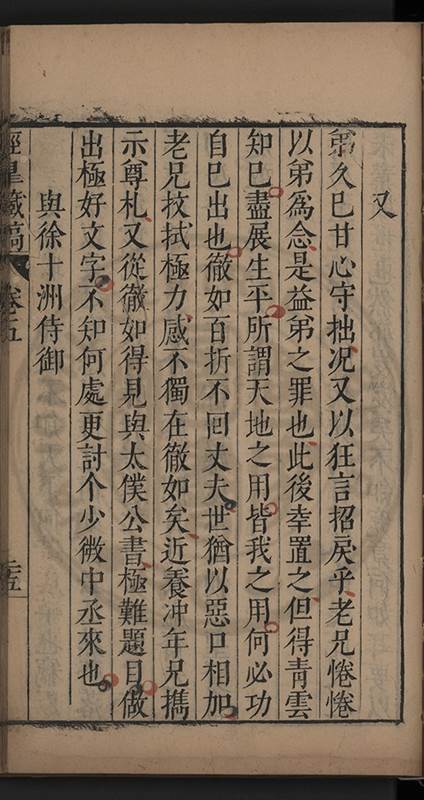 又
弟久已甘心守拙况又以狂言招戾乎老兄惓惓
以弟爲念是益弟之罪也此後幸置之但得青雲
知已盡展生平所謂天地之用皆我之用何必功
自已出也徹如百折不回丈夫世猶以惡口相加
老兄扙拭極力感不獨在徹如矣近養冲年兄擕
示尊札又從徹如得見與太僕公書極難題目做
出極好文字不知何處更討个少微中丞來也
與徐十洲侍御
涇臯藏稿
卷五